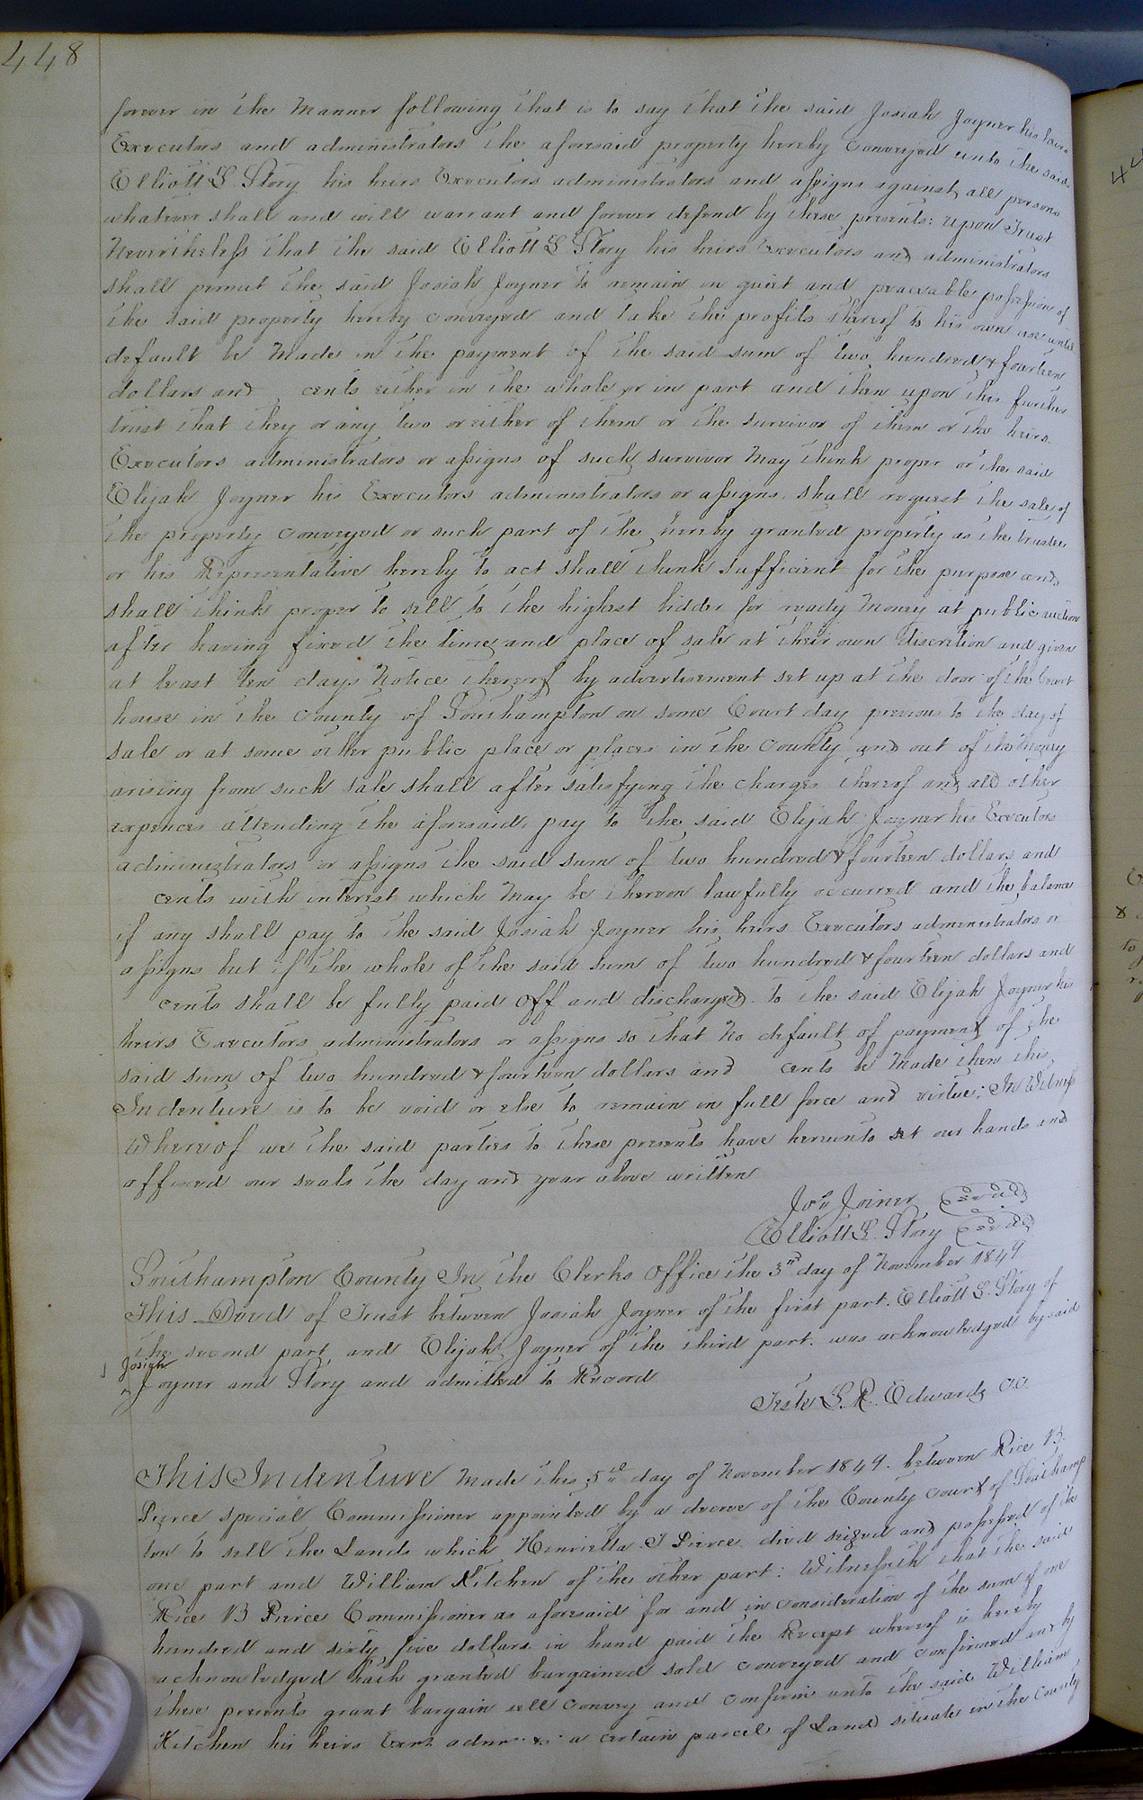 448
forever in the Manner following that is to say that the said Josiah Joyner his heirs
Executors and administrators the aforesaid property hereby Conveyed unto the said
Elliott L. Story his heirs Executors administrators and assigns against all persons
whatever shall and will warrant and forever defend by these presents: upon Trust
Nevertheless that the said Elliott L Story his heirs Executors and administrators
shall permit the said Josiah Joyner to remain in quiet and peaceable possession of
the said property hereby conveyed and take the profits thereof to his own use until
default be Made in the payment of the said sum of two hundred & fourteen
dollars and cents either in the whole or in part and then upon this further
trust that they or any two or either of them or the survivor of them or the heirs
Executors administrators or assigns of such survivor May think proper or the said
Elijah Joyner his Executors administrators or assigns shall request the sale of
the property conveyed or such part of the hereby granted property as the trustee
or his Representative hereby to act shall think sufficient for the purpose and
shall think proper to sell to the highest bidder for ready Money at public auction
after having fixed the time and place of sale at their own discretion and given
at least ten days Notice thereof by advertisement set up at the door of the Court
house in the County of Southampton on some Court day previous to the day of
sale or at some other public place or places in the County and out of the money
arising from such sale shall after satisfying the charges thereof and all other
expences attending the aforesaid, pay to the said Elijah Joyner his Executors
administrators or assigns the said sum of two hundred & fourteen dollars and
cents with interest which May be thereon lawfully occurred and the balance
if any shall pay to the said Josiah Joyner his heirs Executors administrators or
assigns but if the whole of the said sum of two hundred & fourteen dollars and
cents shall be fully paid off and discharged to the said Elijah Joyner his
heirs Executors administrators or assigns so that No default of payment of the
said sum of two hundred & fourteen dollars and cents be Made then this
Indenture is to be void or else to remain in full force and virtue; In Witness
Whereof we the said parties to these presents have hereunto set our hands and
affixed our seals the day and year above written
Jos Joiner Seal
Elliott L. Story Seal
Southampton County In the Clerks Office the 3rd day of November 1849
This Deed of Trust between Josiah Joyner of the first part. Elliott L. Story of
the second part and Elijah Joyner of the third part. was acknowledged by said
Josiah
Joyner and Story and admitted to Record
Teste L. R. Edwards CC
This Indenture Made this 5th day of November 1849. between Rice B.
Pierce special Commissioner appointed by a decree of the County Court of Southamp
ton to sell the Lands which Henrietta J Pierce died seized and possessed of the
one part and William Kitchen of the other part: Witnesseth that the said
Rice B Pierce Commissioner as aforesaid for and in consideration of the sum of one
hundred and sixty five dollars in hand paid the Receipt whereof is hereby
acknowledged hath granted bargained sold conveyed and confirmed and by
these presents grant bargain sell convey and confirm unto the said William
Kitchen his heirs Exrs admrs &c a certain parcel of Land situate in the County